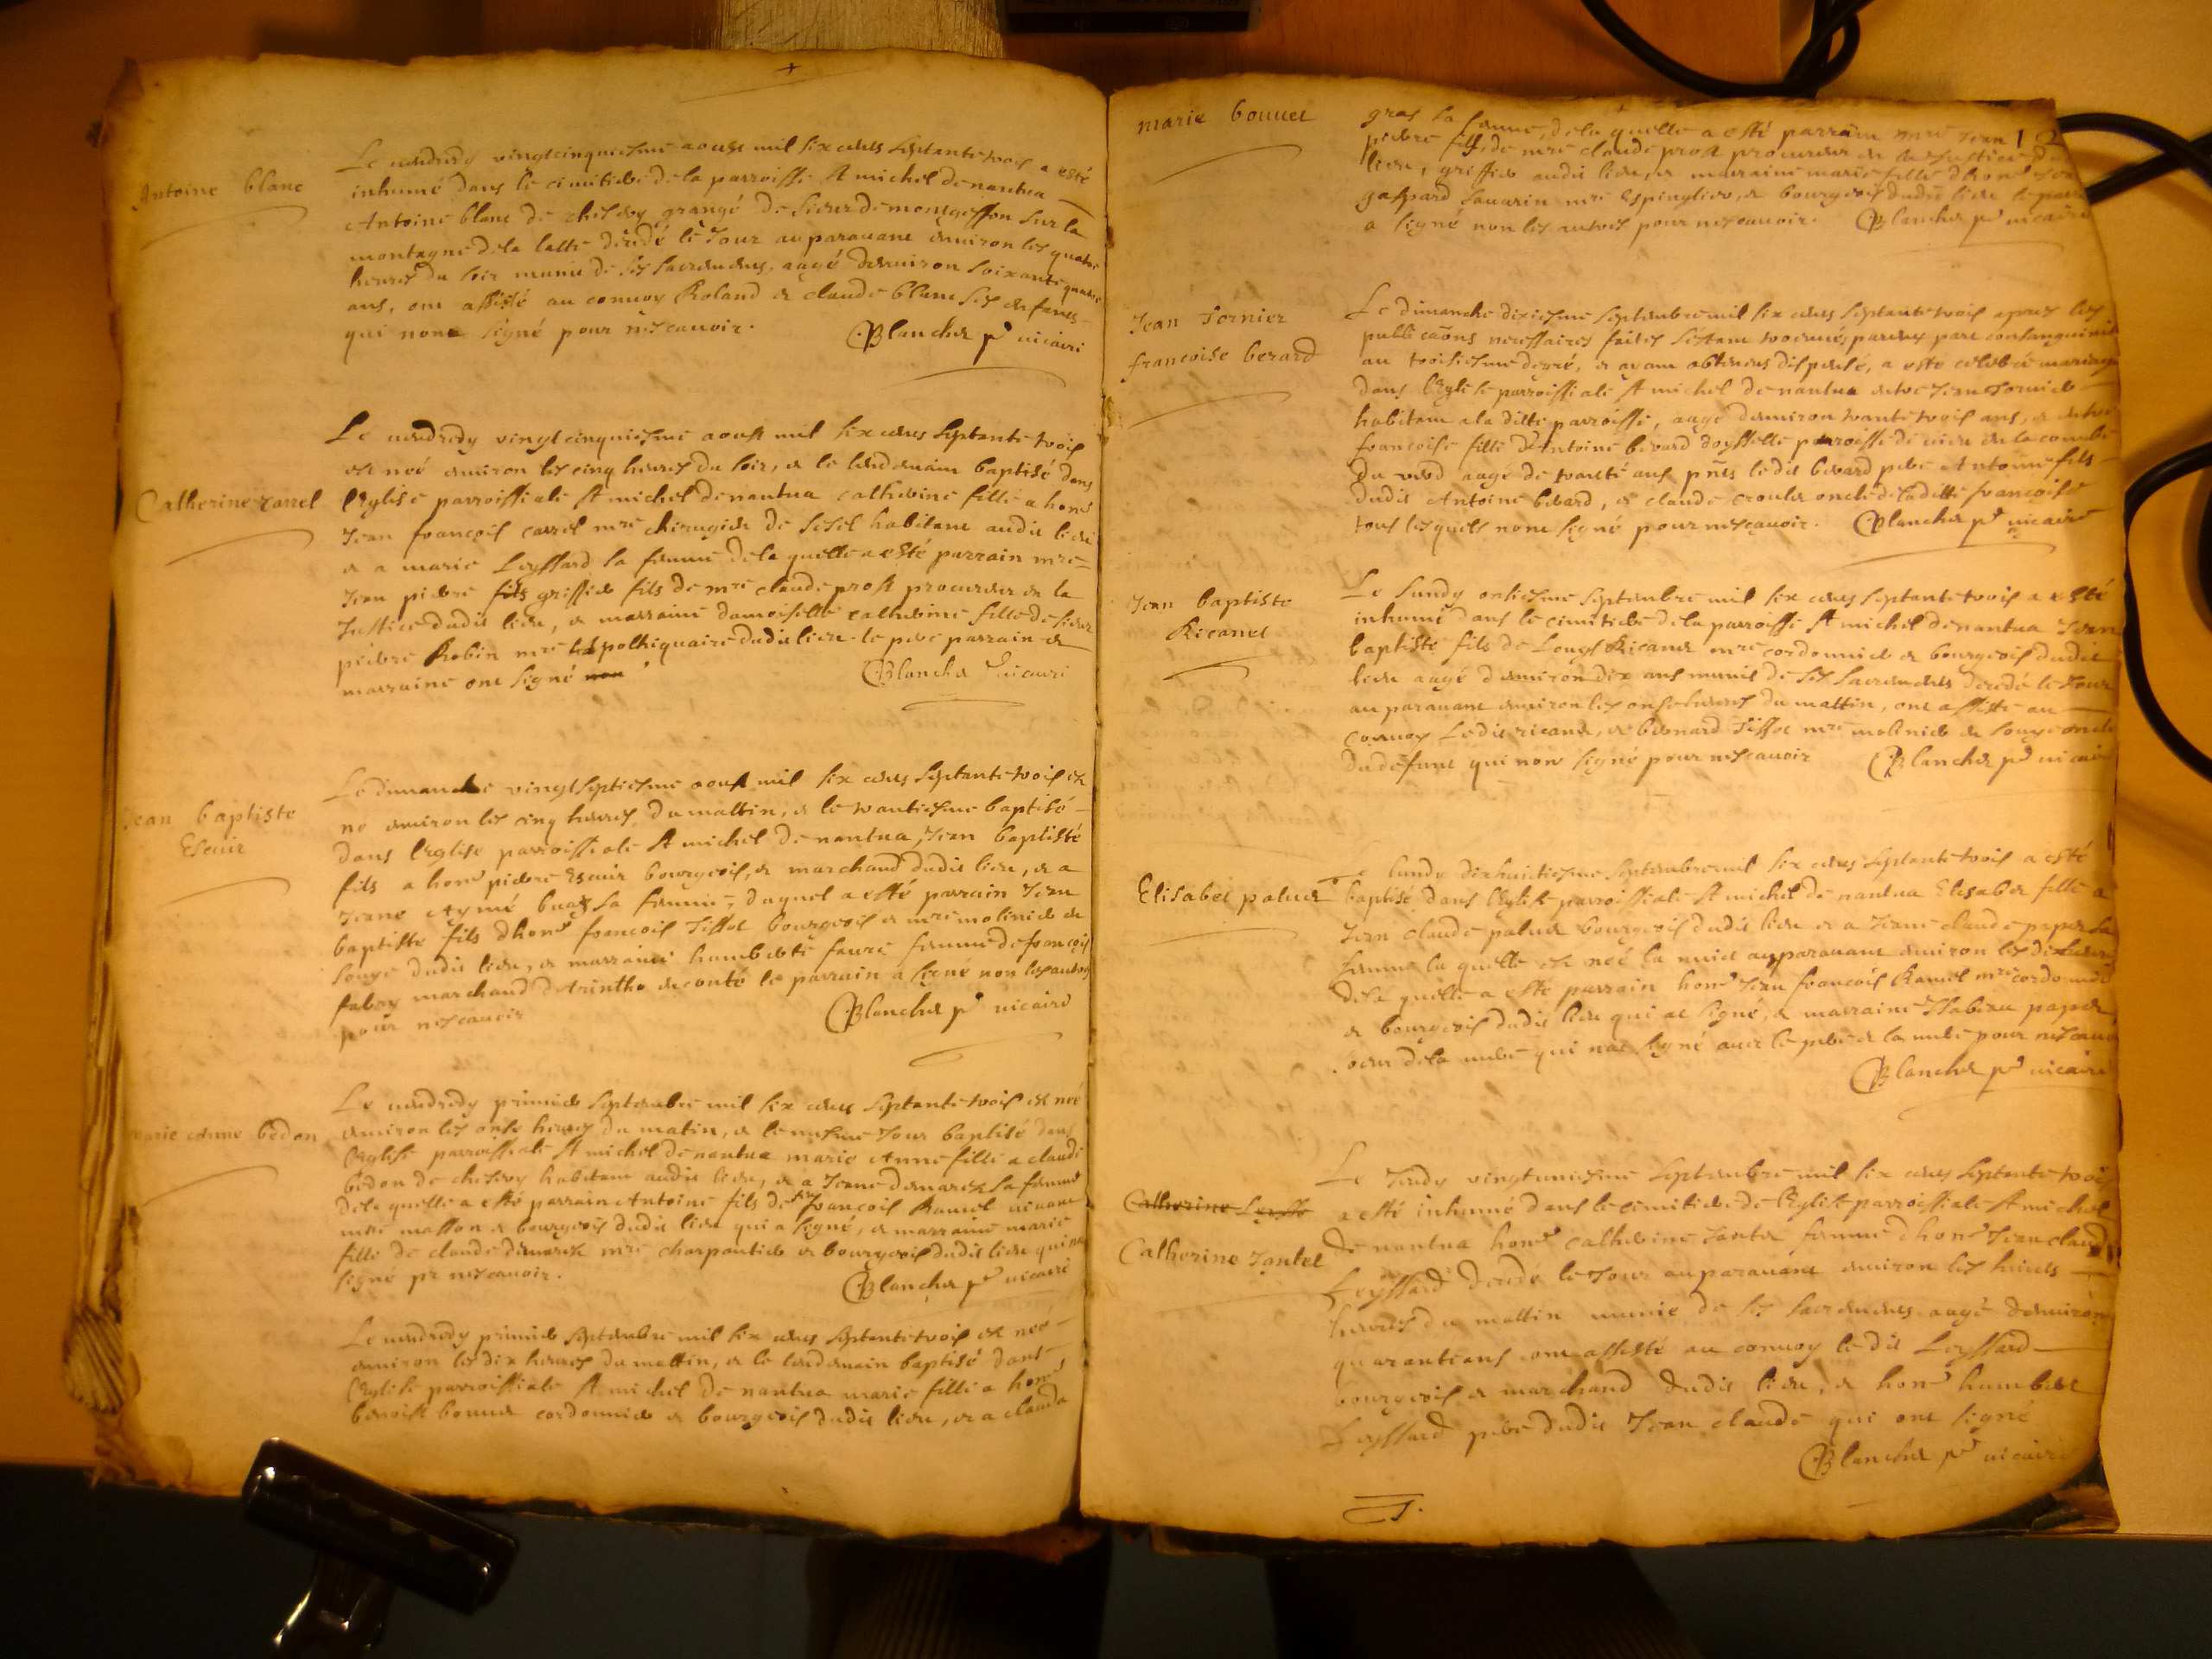 Antoine blanc
Le vendredy vingtcinquiesme aoust mil six cents septante trois a esté
inhumé dans le cimitiere de la parroisse st michel de nantua
Antoine blanc de grangé de sieur de sur la
montagne de la decedé le Jour auparavant environ les quatre
heures du soir munie de ses sacrements, aagé denviron soixante quatre
ans, ont assisté au convoy Roland et claude blanc ses enfans
qui nont signé pour nescavoir.
Blanchet pr vicaire
Catherine
Le vendredy vingtcinquiesme aoust mil six cents septante trois
est neé environ les cinq heures du soir, et le lendemain baptisé dans
lEglise parroissiale st michel de nantua catherine fille a honn
Jean francois mre chirugien de habitant audit lieu
et a marie Leyssard sa femme de la quelle a esté parrain mre
Jean pierre fils griffier fils de mre claude prost procureur en la
Justice dudit lieu, et marraine damoiselle catherine fille de sieur
pierre Robin mre apothiquaire dudit lieu. le pere parrain et
marraine ont signé non
Blanchet vicaire
Jean baptiste
Escuir
Le dimanche vingtseptiesme aoust mil six cents septante trois est
né environ les cinq heures du mattin, et le trantiesme baptisé
dans lEglise parroissiale st michel de nantua, Jean baptiste
fils a honn pierre Escuir bourgeois, et marchand dudit lieu, et a
Jeane Aymé sa femme, duquel a esté parrain Jean
baptiste fils dhonn francois Tissot bourgeois et mre molinier de
soye dudit lieu, et marraine humberte favre femme de francois
fabry marchand dArintho en conté le parrain a signé non les autres
pour nescavoir
Blanchet pr vicaire
marie Anne bedon
Le vendredy premier septembre mil six cents septante trois est neé
environ les onse heures du matin, et le mesme Jour baptisé dans
lEglise parroissiale st michel de nantua marie Anne fille a claude
bedon de habitant audit lieu, et a Jeane sa femme
de la quelle a esté parrain Antoine fils de feu francois Ramel vivant
mre masson et bourgeois dudit lieu qui a signé, et marraine marie
fille de claude mre charpantier et bourgeois dudit lieu qui na
signé pr nescavoir.
Blanchet pr vicaire
Le vendredy premier septembre mil six cents septante trois est neé
environ les dix heures du mattin, et le lendemain baptisé dans
lEglise parroissiale st michel de nantua marie fille a honn
benoist bouvet cordonnier et bourgeois dudit lieu, et a clauda
marie bouvet
12
gras sa femme, de la quelle a esté parrain mre Jean
pierre fils de mre claude prost procureur en la Justice du
lieu, griffier audit lieu, et marraine marie fille dhonn
gaspard savarin mre Espinglier, et bourgeois dudit lieu le parrain
a signé non les autres pour nescavoir. Blanchet pr vicaire
Jean Fornier
francoise berard
Le dimanche dixiesme septembre mil six cents septante trois apres les
publicaōns necessaires faites sestant trouvés parents par consanguinité
au troisiesme degré, et ayant obtenus dispense, a esté celebré mariage
dans lEglise parroissiale st michel de nantua entre Jean Fornier
habitant a la ditte parroisse, aagé denviron trante trois ans, et entre
francoise fille dAntoine berard parroisse de en la combe
du aagé de trante ans pñts ledit berard pere Antoine fils
dudit Antoine berard, et claude oncle de la ditte francoise
tous lesquels nont signé pour nescavoir. Blanchet pr vicaire
Jean baptiste
Ricanet
Le Lundy onsiesme septembre mil six cents septante trois a esté
inhumé dans le cimitiere de la parroisse st michel de nantua Jean
baptiste fils de Louys Ricanet mre cordonnier et bourgeois dudit
lieu aagé denviron dix ans munis de ses sacrements decedé le Jour
auparavant environ les onse heures du mattin, ont assisté au
convoy Ledit ricanet, et bernard Tissot mre molinier de soye oncle
du defunt qui nont signé pour nescavoir Blanchet pr vicaire
Elisabet paluet
Le lundy dixhuictiesme septembre mil six cents septante trois a esté
baptisé dans lEglise parroissiale st michel de nantua Elisabet fille a
Jean claude paluet bourgeois dudit lieu et a Jeane claude papet sa
femme la quelle est neé la nuict auparavant environ les dix heures
de la quelle a esté parrain honn Jean francois Ramel mre cordonnier
et bourgeois dudit lieu qui at signé, et marraine Isabeau papet
soeur de la mere qui nat signé avec le pere et la mere pour nescavoir
Blanchet pr vicaire
Catherine
Catherine Jantet
Le Jeudy vingtuniesme septembre mil six cents septante trois
a esté inhumé dans le cimitiere de lEglise parroissiale st michel
de nantua honn catherine Jantet femme dhonn Jean claude
Leyssard decedé le Jour auparavant environ les
heures du mattin munie de ses sacrements aagé denviron
quarante ans ont assisté au convoy le dit Leyssard
bourgeois et marchand dudit lieu, et honn humbert
Leyssard pere dudit Jean claude qui ont signé
Blanchet pr vicaire